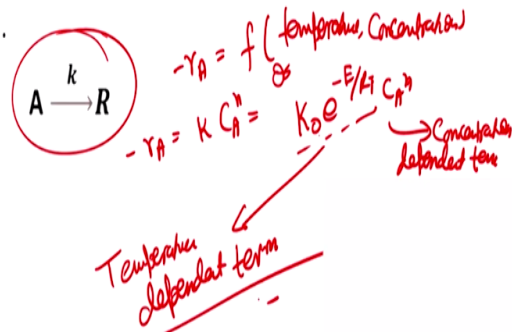 -rA = f (temperature, Concentration)
A k→ R
-rA = K CAⁿ = K₀e^-E/RT CAⁿ
Concentration
depended term
Temperature
dependent term